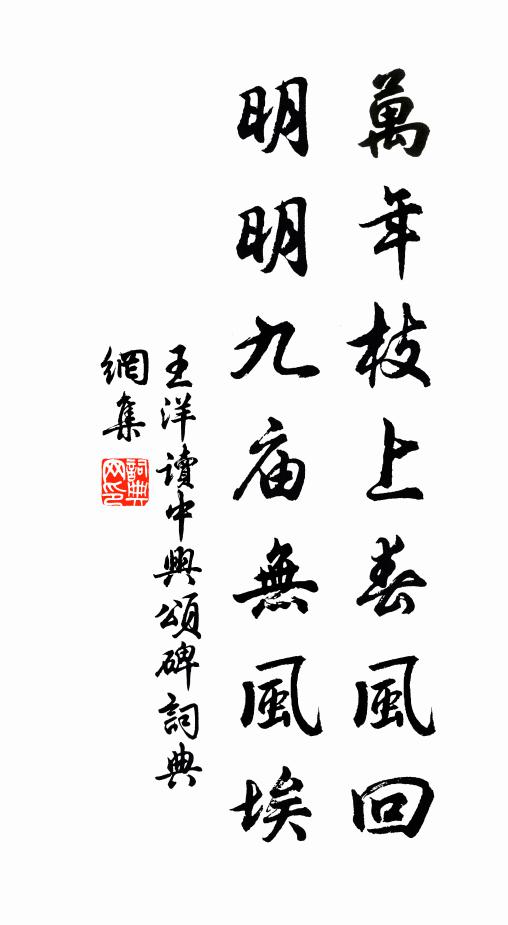 萬年枝上春風回
明明九庙無風埃
王洋讀中興頌碑詞典
網集
詞典
网印